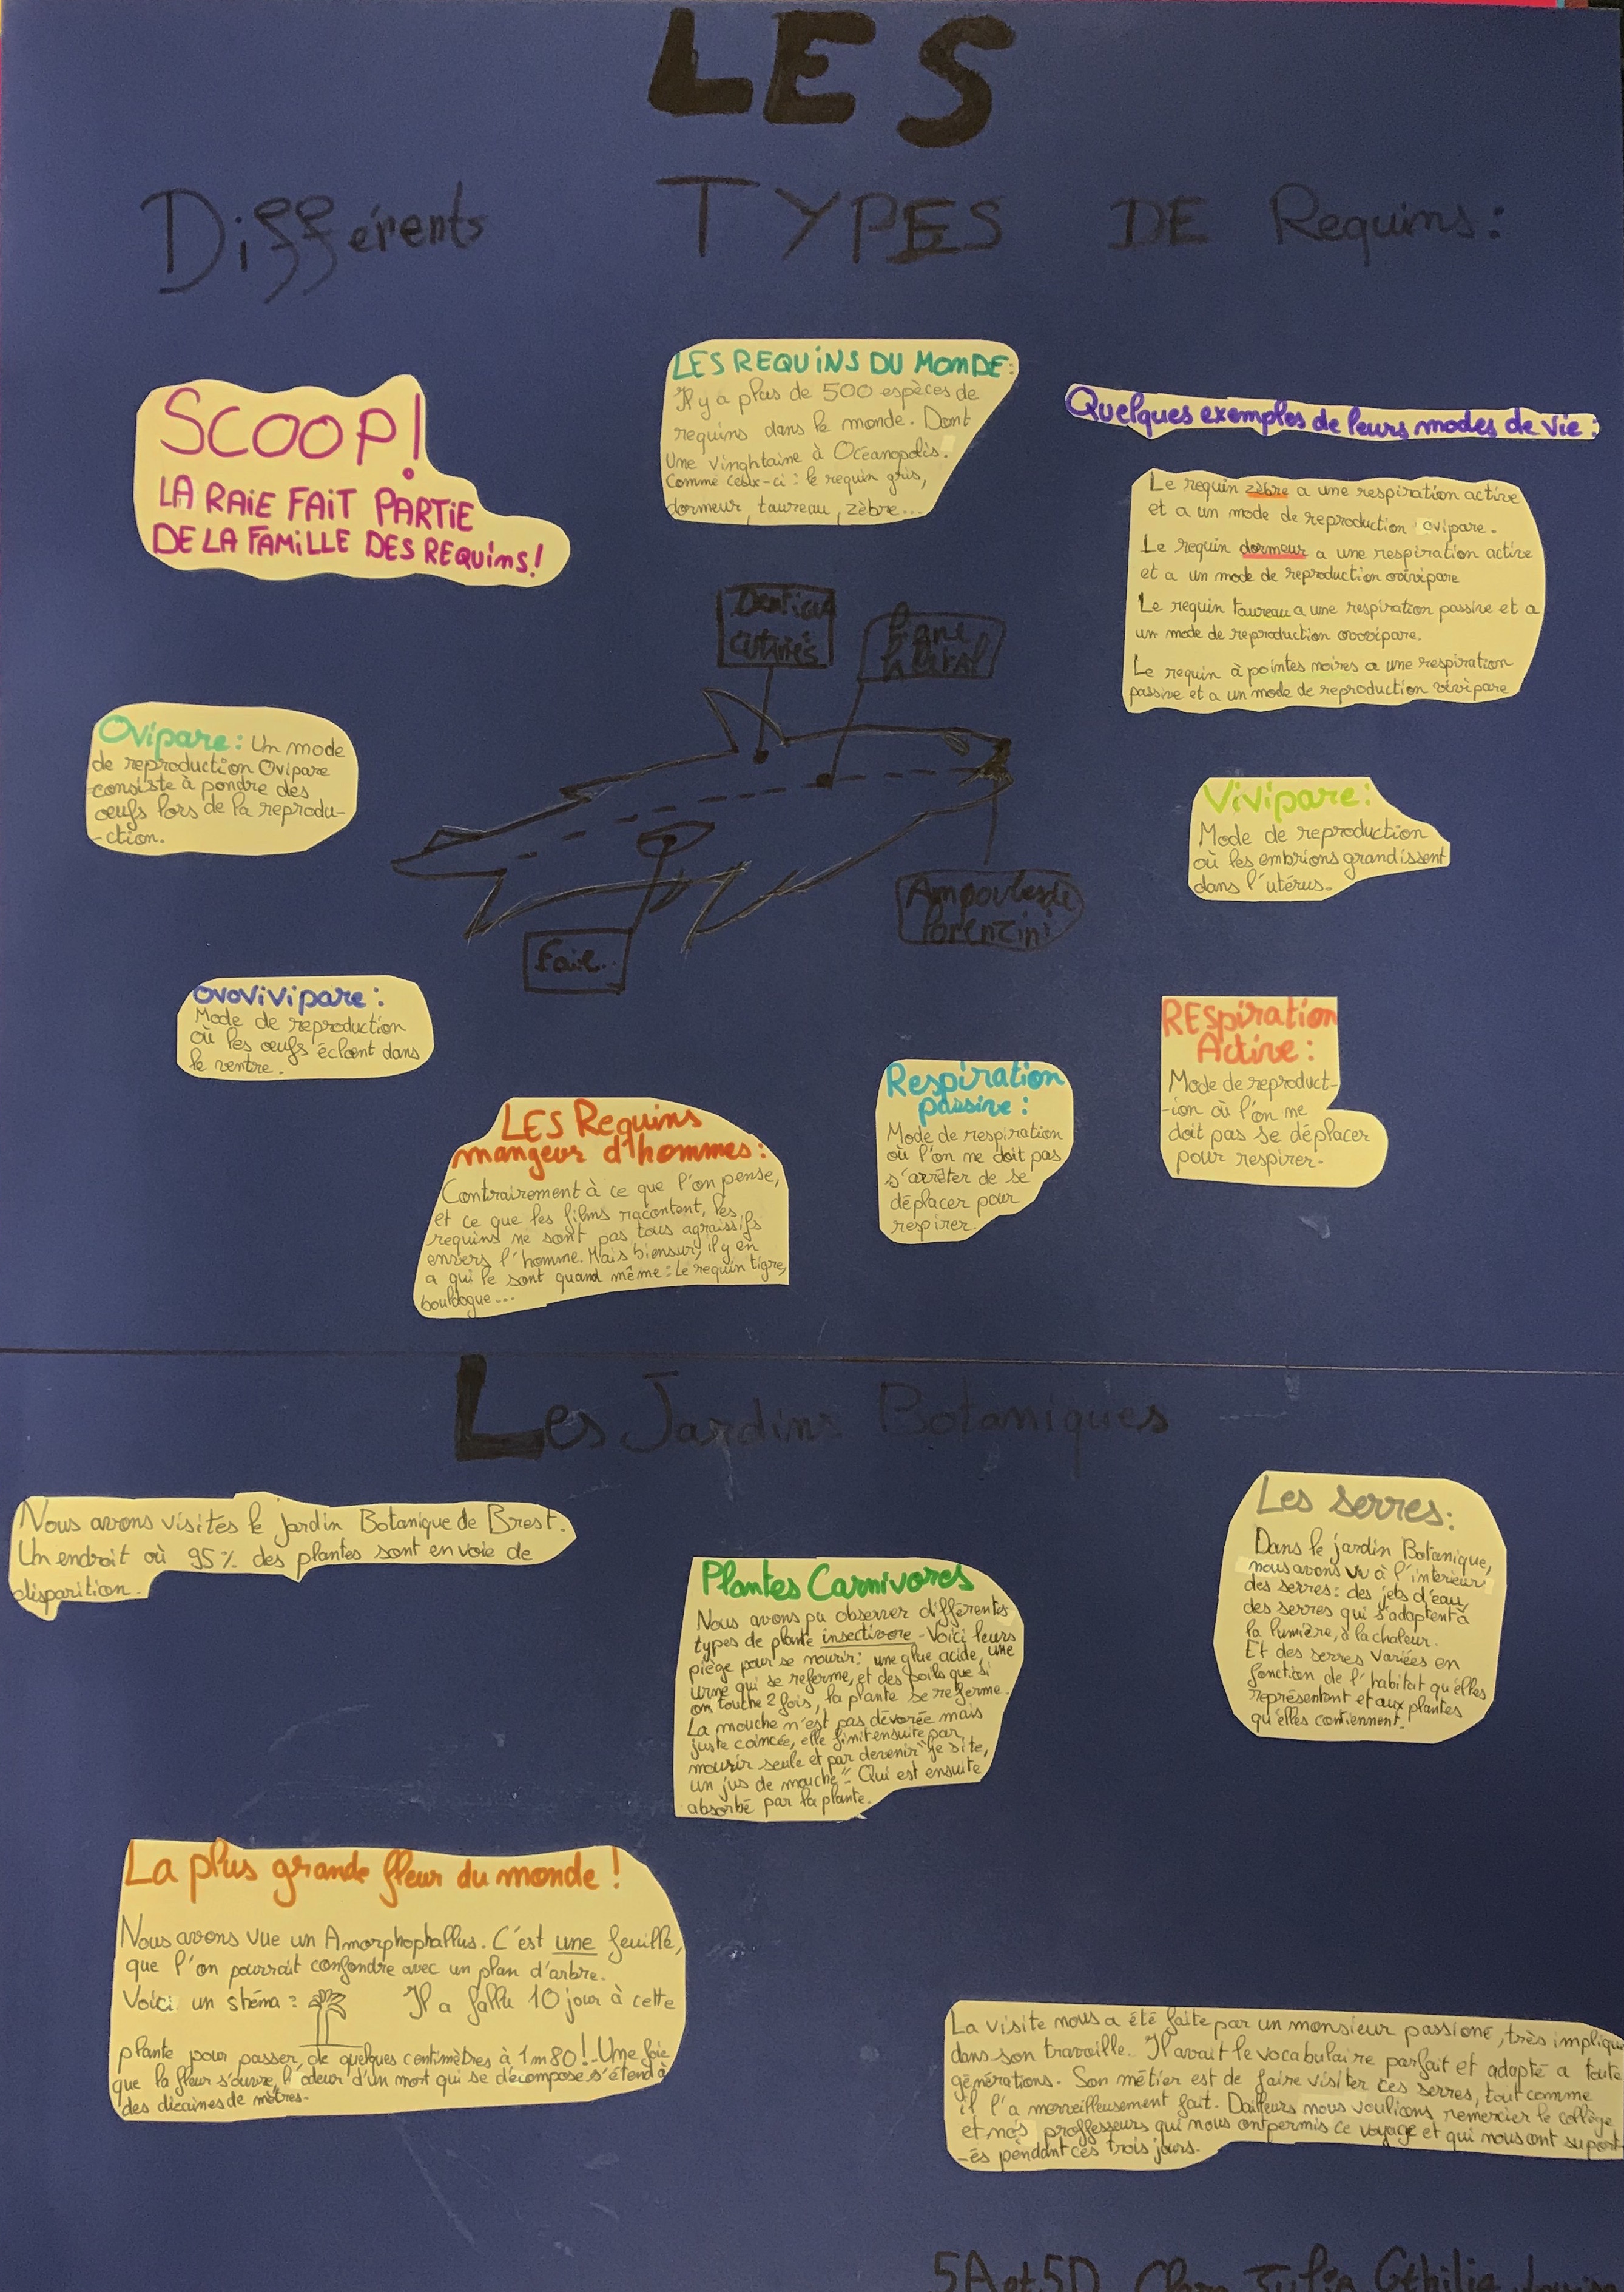 LES
Différents TYPES DE Requins:
SCOOP!
LA RAIE FAIT PARTIE
DE LA FAMILLE DES REQUINS!
LES REQUINS DU MONDE:
Il y a plus de 500 espèces de
requins dans le monde. Dont
Une vinghtaine à Océanopolis.
Comme ceux-ci : le requin gris,
dormeur, taureau, zèbre...
Quelques exemples de leurs modes de vie :
Le requin zèbre a une respiration active
et a un mode de reproduction ovipare.
Le requin dormeur a une respiration active
et a un mode de reproduction ovivipare
Le requin taureau a une respiration passive et a
un mode de reproduction ovovipare.
Le requin à pointes noires a une respiration
passive et a un mode de reproduction vivipare
cutanés
Ovipare: Un mode
de reproduction Ovipare
consiste à pondre des
œufs lors de la reprodu-
-ction.
Vivipare:
Mode de reproduction
où les embrions grandissent
dans l'utérus.
Ampoules de
lorenzini
Foie
Ovovivipare:
Mode de reproduction
où les œufs éclosent dans
le ventre.
REspiration
Active:
Mode de reproduct-
-ion où l'on ne
doit pas se déplacer
pour respirer.
Respiration
passive:
Mode de respiration
où l'on ne doit pas
s'arrêter de se
déplacer pour
respirer.
LES Requins
mangeur d'hommes:
Contrairement à ce que l'on pense,
et ce que les films racontent, les
requins ne sont pas tous agraissifs
envers l'homme. Mais biensur, il y en
a qui le sont quand même: Le requin tigre,
bouldogue...
Les Jardins Botaniques
Nous avons visités le jardin Botanique de Brest.
Un endroit où 95% des plantes sont en voie de
disparition.
Plantes Carnivores
Nous avons pu observer différentes
types de plante insectivore. Voici leurs
piège pour se nourir: une glue acide, une
urne qui se referme, et des poils que si
on touche 2 fois, la plante se referme.
La mouche n'est pas dévorée mais
juste coincée, elle finit ensuite par
mourir seule et par devenir "je site,
un jus de mouche". Qui est ensuite
absorbé par la plante.
Les serres:
Dans le jardin Botanique,
nous avons vu à l'intérieur
des serres: des jets d'eau,
des serres qui s'adaptent à
la lumière, à la chaleur.
Et des serres variées en
fonction de l'habitat qu'elles
représentent et aux plantes
qu'elles contiennent.
La plus grande fleur du monde!
Nous avons vue un Amorphophallus. C'est une feuille,
que l'on pourrait confondre avec un plan d'arbre.
Voici un shéma: Il a fallu 10 jour à cette
plante pour passer, de quelques centimètres à 1m80! Une fois
que la fleur s'ouvre, l'odeur d'un mort qui se décompose s'étend à
des dizaines de mètres.
La visite nous a été faite par un monsieur passioné, très impliqu
dans son travaille. Il avait le vocabulaire parfait et adapté a toute
générations. Son métier est de faire visiter ces serres, tout comme
il l'a merveilleusement fait. Dailleurs nous voulions remercier le collège
et nos proffesseurs qui nous ont permis ce voyage et qui nous ont suport-
-és pendant ces trois jours.
5A et 5D Julia